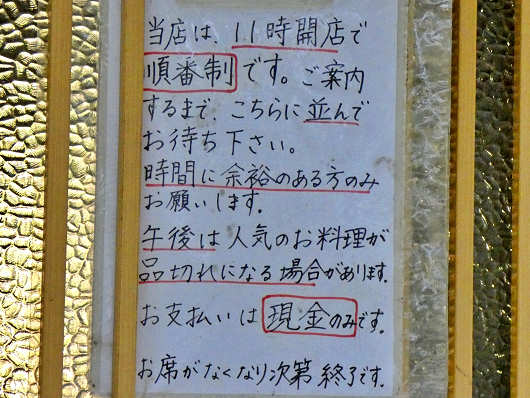 当店は、11時開店で
順番制です。ご案内
するまで、こちらに並んで
お待ち下さい。
時間に余裕のある方のみ
お願いします。
午後は人気のお料理が
品切れになる場合があります。
お支払いは現金のみです。
お席がなくなり次第終了です。